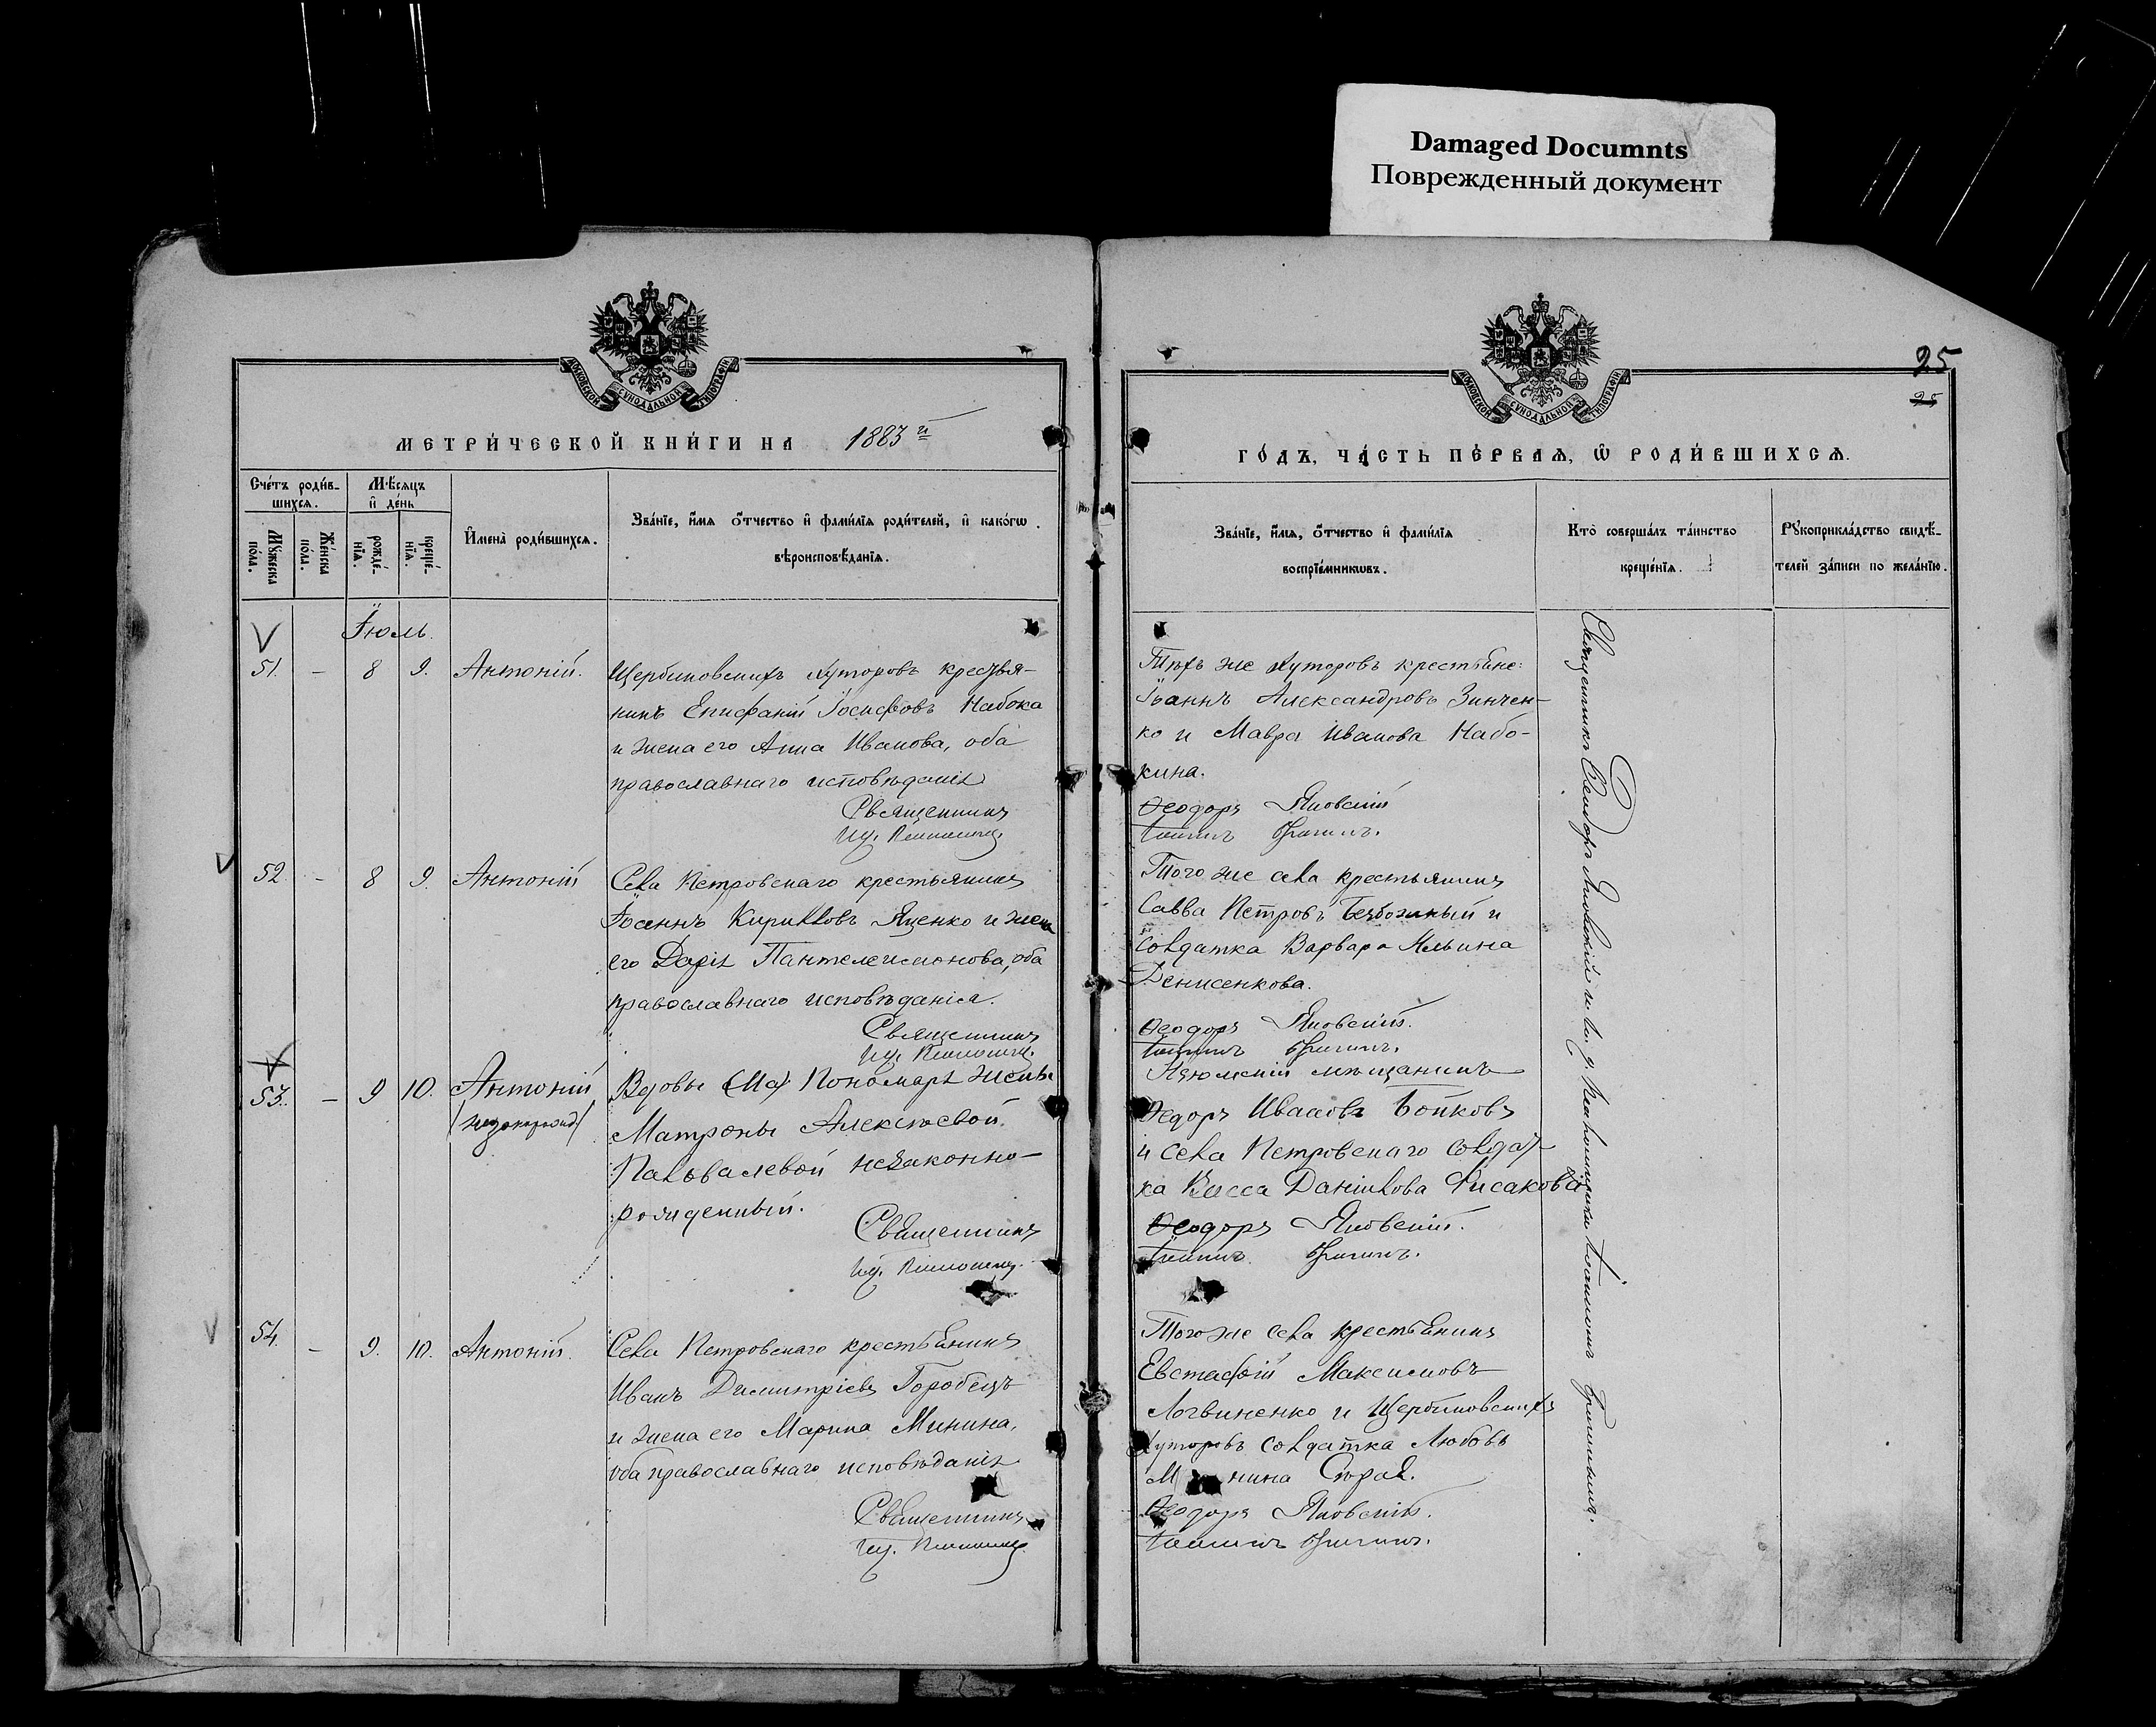 Damaged Documnts
Поврежденный документ
МОСКОВСКОЙ СУНОДАЛЬНОЙ ТИПОГРАФІИ
МЕТРИ́ЧЕСКОЙ КНИ́ГИ НА 1883 й
Сче́тъ роди́в-
шихсѧ.
Мѣ́сѧцъ
и҆ де́нь
Мꙋ́жеска
по́ла.
Же́нска
по́ла.
рожде́-
нїѧ.
креще́-
нїѧ.
И҆мена̀ роди́вшихсѧ.
Зва́нїе, и҆́мѧ ѻ҆́тчество и҆ фамѝлїѧ роди́телей, и҆ како́гѡ
вѣроисповѣ́данїѧ.
Іюль.
51. – 8 9. Антоній.
Щербиновскихъ хуторовъ крестья-
нинъ Епифаній Іосифовъ Набока
и жена его Анна Иванова, оба
православнаго исповѣданія
Священникъ
52. – 8 9. Антоній
Села Петровскаго крестьянинъ
Іоаннъ Кирилловъ Яценко и жена
его Дарія Пантелеимонова, оба
православнаго исповѣданія.
Священникъ
53. – 9 10. Антоній
Вдовы Пономаря жены
Матроны Алексѣевой
Паловалевой незаконно-
рожденный.
Священникъ
54. – 9. 10. Антоній.
Села Петровскаго крестьянинъ
Иванъ Димитріевъ Горобецъ
и жена его Марина Минина,
оба православнаго исповѣданія
Священникъ
25
25
МОСКОВСКОЙ СУНОДАЛЬНОЙ ТИПОГРАФІИ
ГО́ДЪ, ЧА́СТЬ ПЕ́РВАѦ, Ѡ҆ РОДИ́ВШИХСѦ.
Зва́нїе, и҆́мѧ, ѻ҆́тчество и҆ фамѝлїѧ
воспрїе́мникѡвъ.
Кто̀ соверша́лъ та́инство
креще́нїѧ.
Рꙋкоприкла́дство свидѣ́-
телей за́писи по жела́нїю.
Тѣхъ же хуторовъ крестьяне:
Іоаннъ Александровъ Зинчен-
ко и Мавра Иванова Набо-
кина.
Ѳеодоръ Яновскій
Того же села крестьянинъ
Савва Петровъ Безбожный и
солдатка Варвара Ильина
Денисенкова.
Ѳеодоръ Яновскій.
Изюмскій мѣщанинъ
Ѳедоръ Ивановъ Бойковъ
и села Петровскаго солдат-
ка Васса Данилова Фисакова
Ѳеодоръ Яновскій.
Того же села крестьянинъ
Евстафій Максимовъ
Логвиненко и Щербиновскихъ
хуторовъ солдатка Любовь
Ѳеодоръ Яновскій.
Священникъ Ѳеодоръ Яновскій